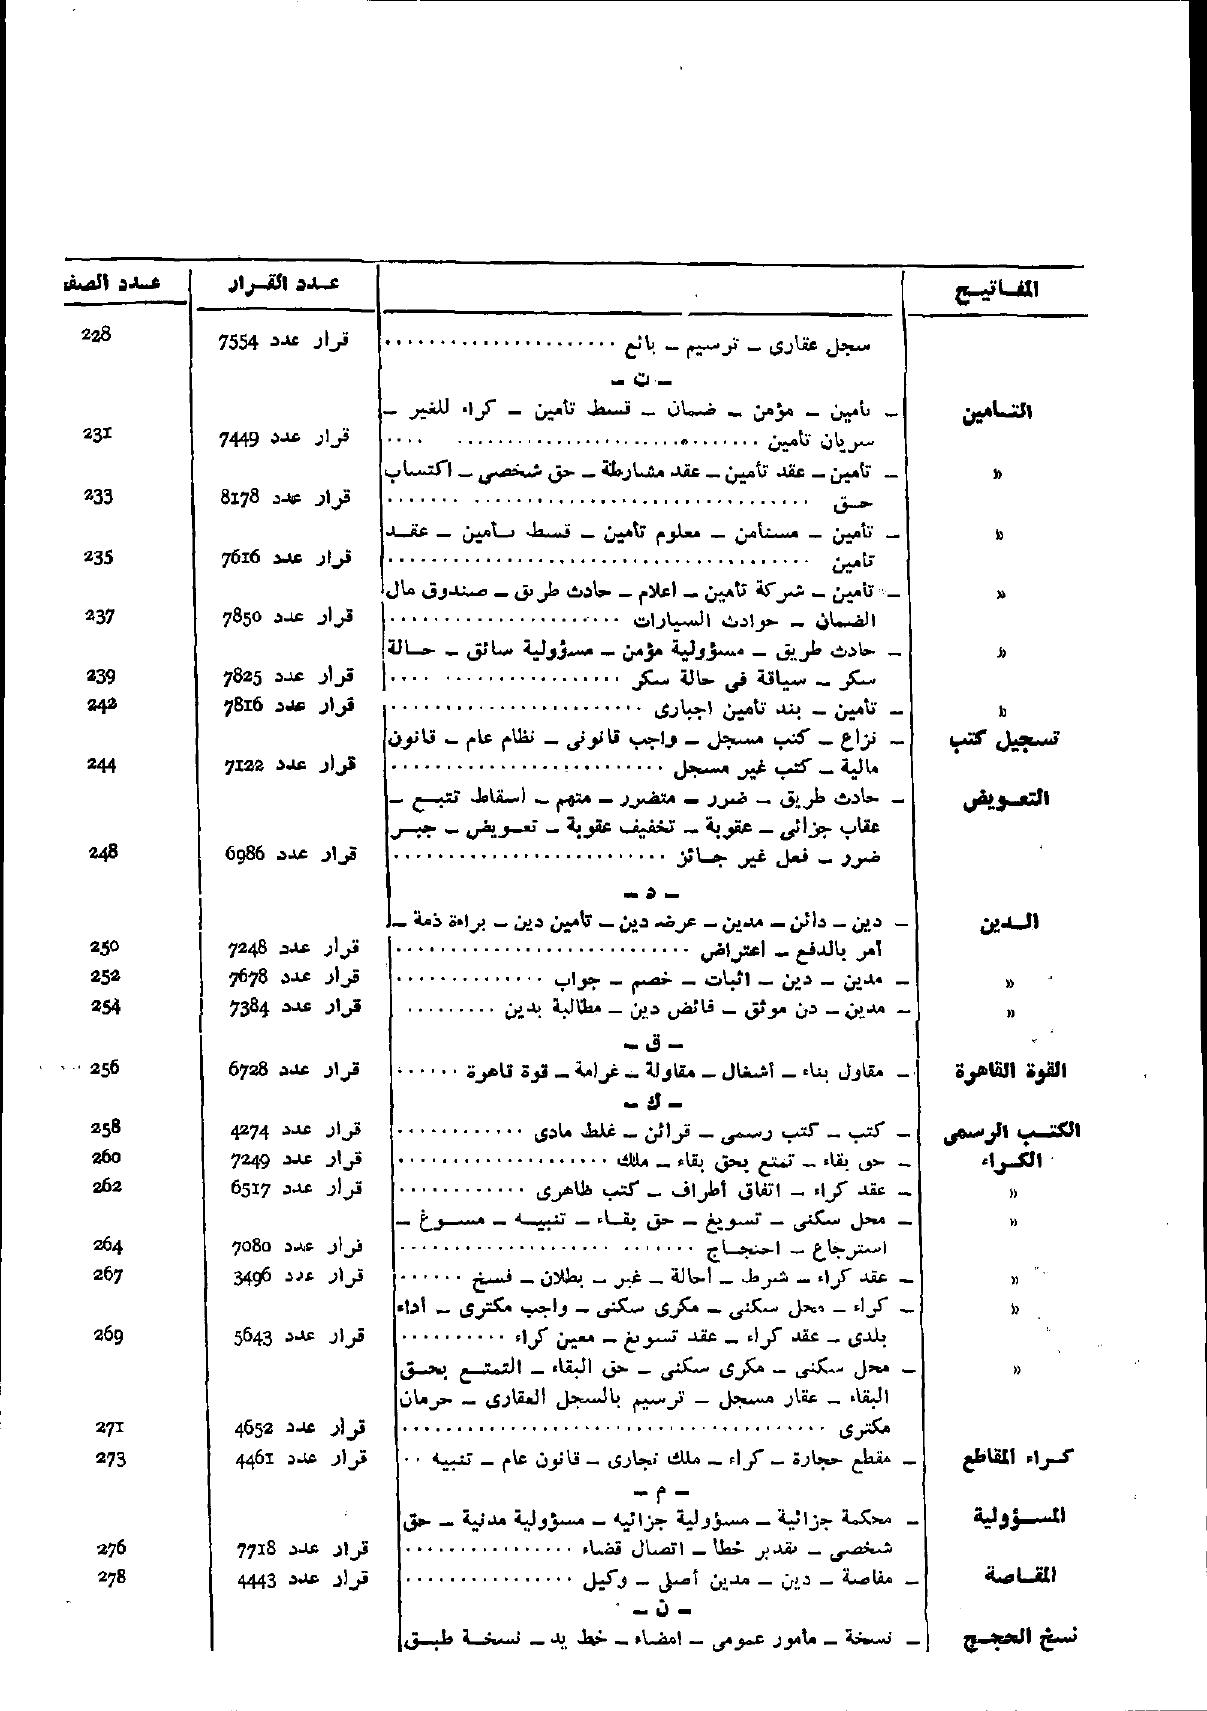 المفاتيح عدد القرار عدد الصفـ
سجل عقارى ـ ترسيم ـ بائع ...................... قرار عدد 7554 228
ـ ت ـ
التأمين ـ تأمين ـ مؤمن ـ ضمان ـ قسط تأمين ـ كراء للغير ـ
سريان تأمين ...................... قرار عدد 7449 231
» ـ تأمين ـ عقد تأمين ـ عقد مشارطة ـ حق شخصى ـ اكتساب
حق ...................... قرار عدد 8178 233
» ـ تأمين ـ مستأمن ـ معلوم تأمين ـ قسط تأمين ـ عقد
تأمين ...................... قرار عدد 7616 235
» ـ تأمين ـ شركة تأمين ـ اعلام ـ حادث طريق ـ صندوق مال
الضمان ـ حوادث السيارات ...................... قرار عدد 7850 237
» ـ حادث طريق ـ مسؤولية مؤمن ـ مسؤولية سائق ـ حالة
سكر ـ سياقة فى حالة سكر ...................... قرار عدد 7825 239
» ـ تأمين ـ بند تأمين اجبارى ...................... قرار عدد 7816 242
تسجيل كتب ـ نزاع ـ كتب مسجل ـ واجب قانونى ـ نظام عام ـ قانون
مالية ـ كتب غير مسجل ...................... قرار عدد 7122 244
التعويض ـ حادث طريق ـ ضرر ـ متضرر ـ متهم ـ اسقاط تتبع ـ
عقاب جزائى ـ عقوبة ـ تخفيف عقوبة ـ تعويض ـ جبر
ضرر ـ فعل غير جائز ...................... قرار عدد 6986 248
ـ د ـ
الدين ـ دين ـ دائن ـ مدين ـ عرض دين ـ تأمين دين ـ براءة ذمة ـ
أمر بالدفع ـ اعتراض ...................... قرار عدد 7248 250
» ـ مدين ـ دين ـ اثبات ـ خصم ـ جواب .............. قرار عدد 7678 252
» ـ مدين ـ دن موثق ـ فائض دين ـ مطالبة بدين ......... قرار عدد 7384 254
ـ ق ـ
القوة القاهرة ـ مقاول بناء ـ أشغال ـ مقاولة ـ غرامة ـ قوة قاهرة ...... قرار عدد 6728 256
ـ ك ـ
الكتب الرسمى ـ كتب ـ كتب رسمى ـ قرائن ـ غلط مادى ............ قرار عدد 4274 258
الكراء ـ حق بقاء ـ تمتع بحق بقاء ـ ملك .................... قرار عدد 7249 260
» ـ عقد كراء ـ اتفاق أطراف ـ كتب ظاهرى ............ قرار عدد 6517 262
» ـ محل سكنى ـ تسويغ ـ حق بقاء ـ تنبيه ـ مسوغ ـ
استرجاع ـ احتجاج ...................... قرار عدد 7080 264
» ـ عقد كراء ـ شرط ـ احالة ـ غير ـ بطلان ـ فسخ ...... قرار عدد 3496 267
» ـ كراء ـ محل سكنى ـ مكرى سكنى ـ واجب مكترى ـ أداء
بلدى ـ عقد كراء ـ عقد تسويغ ـ معين كراء .......... قرار عدد 5643 269
» ـ محل سكنى ـ مكرى سكنى ـ حق البقاء ـ التمتع بحق
البقاء ـ عقار مسجل ـ ترسيم بالسجل العقارى ـ حرمان
مكترى ...................... قرار عدد 4652 271
كراء المقاطع ـ مقطع حجارة ـ كراء ـ ملك تجارى ـ قانون عام ـ تنبيه .. قرار عدد 4461 273
ـ م ـ
المسؤولية ـ محكمة جزائية ـ مسؤولية جزائيه ـ مسؤولية مدنية ـ حق
شخصى ـ تقدير خطأ ـ اتصال قضاء ................ قرار عدد 7718 276
المقاصة ـ مقاصة ـ دين ـ مدين أصلى ـ وكيل ................ قرار عدد 4443 278
ـ ن ـ
نسخ الحجج ـ نسخة ـ مأمور عمومى ـ امضاء ـ خط يد ـ نسخة طبق